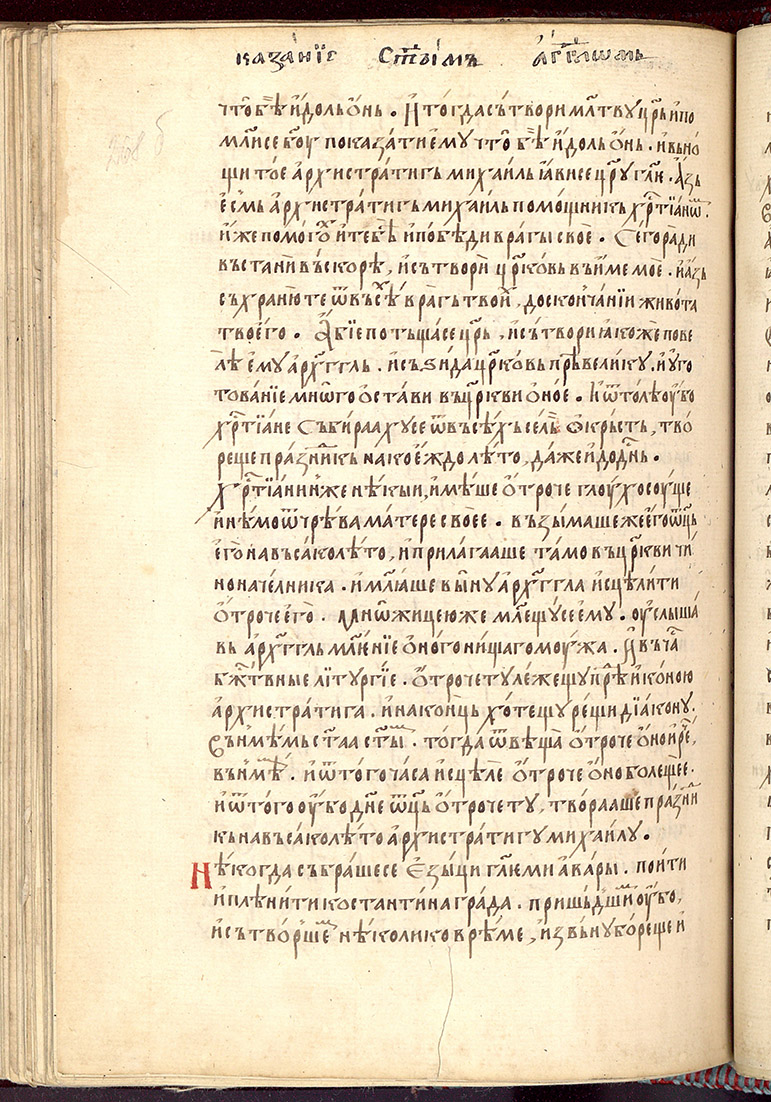 казанїе ст҃ыимь а҆гг҃лѡмь
что̀ бѣ̀ и҆доль ѻ҆нь . И҆ тогда сътвори мл҃тву цр҃ь и҆ по
мл҃исе бг҃оу показати е҆му что̀ бѣ̀ и҆доль ѻ҆нь . и҆ вьно́
щи тое а҆рхистрати́гь михаиль ꙗ҆висе цр҃у гл҃ѥ . А҆зь
е҆смь а҆рхистрати́гь михаиль помощникь хрⷭ҇тїаноⷨ .
и҆же помого́х и҆ тебѣ и҆ побѣди враги свое . Сего ради
въстани̏ въскорѣ , и҆ сътвори̏ цр҃ковь въ и҆ме мое . и҆ а҆зь
съхраню те ѿ въсѣхь врагь твои̏ , до скончанїи живота
твоего . А҆бїе потьщасе цр҃ь , и҆ сътвори ꙗ҆коже пове
лѣ е҆му а҆рхⷢ҇гль . и҆ съзида цр҃ковь прѣвелику . и҆ уго
тованїе мнѡго ѻ҆стави въ цр҃кви ѻ҆ное . И҆ ѿтолѣ оу҆бо
хрⷭ҇тїане събираахусе ѿ въсѣхь сель ѻ҆крьсть , тво
реще пра́зⷣникь на коеждо лѣто , даже и҆ до дн҃ь .
Хрⷭ҇тїанин же нѣкыи , и҆мѣше ѻ҆троче глоухо соуще
и҆ нѣмо ѿ чрѣва матере своее . възымаше же е҆го ѡ҆ц҃ь
е҆го̀ на въсако лѣто , и҆ прилагааше тамо въ цр҃кви чи
ноначелника . и҆ мл҃ꙗше вы́ну а҆рхⷢ҇гла и҆сцѣлити
ѻ҆троче е҆го̀ . Мнѡжицею же мл҃ещусе е҆му . оу҆слыша
вь а҆рхⷢ҇гль мл҃енїе ѻ҆ного нищаго моужа . И҆ въ ча́ⷭ
бжⷭ҇твные лїтургїе . ѻ҆трочету лежещу прⷣѣ и҆коною
а҆рхистратига . и҆ на коньць хотещу рещи дїакону .
Вънмѣмь ст҃аа ст҃ыⷨ . тогда ѿвѣща ѻ҆троче ѻ҆но и҆ реⷱ ,
вънмѣⷨ . и҆ ѿ того часа и҆сцѣле ѻ҆троче ѻ҆но болещее .
и҆ ѿ того оу҆бо дн҃е ѡ҆ц҃ь ѻ҆трочету , твораше празⷣни
кь на въсако лѣто а҆рхистратигу михаилу .
Нѣкогда събрашесе є҆зыци гл҃еми а҆вары . поити
и҆ плѣнити костантина града . пришьдшиⷨ оу҆бо ,
и҆ сътворшеⷨ нѣколико врѣме , и҆звьну бореще и҆